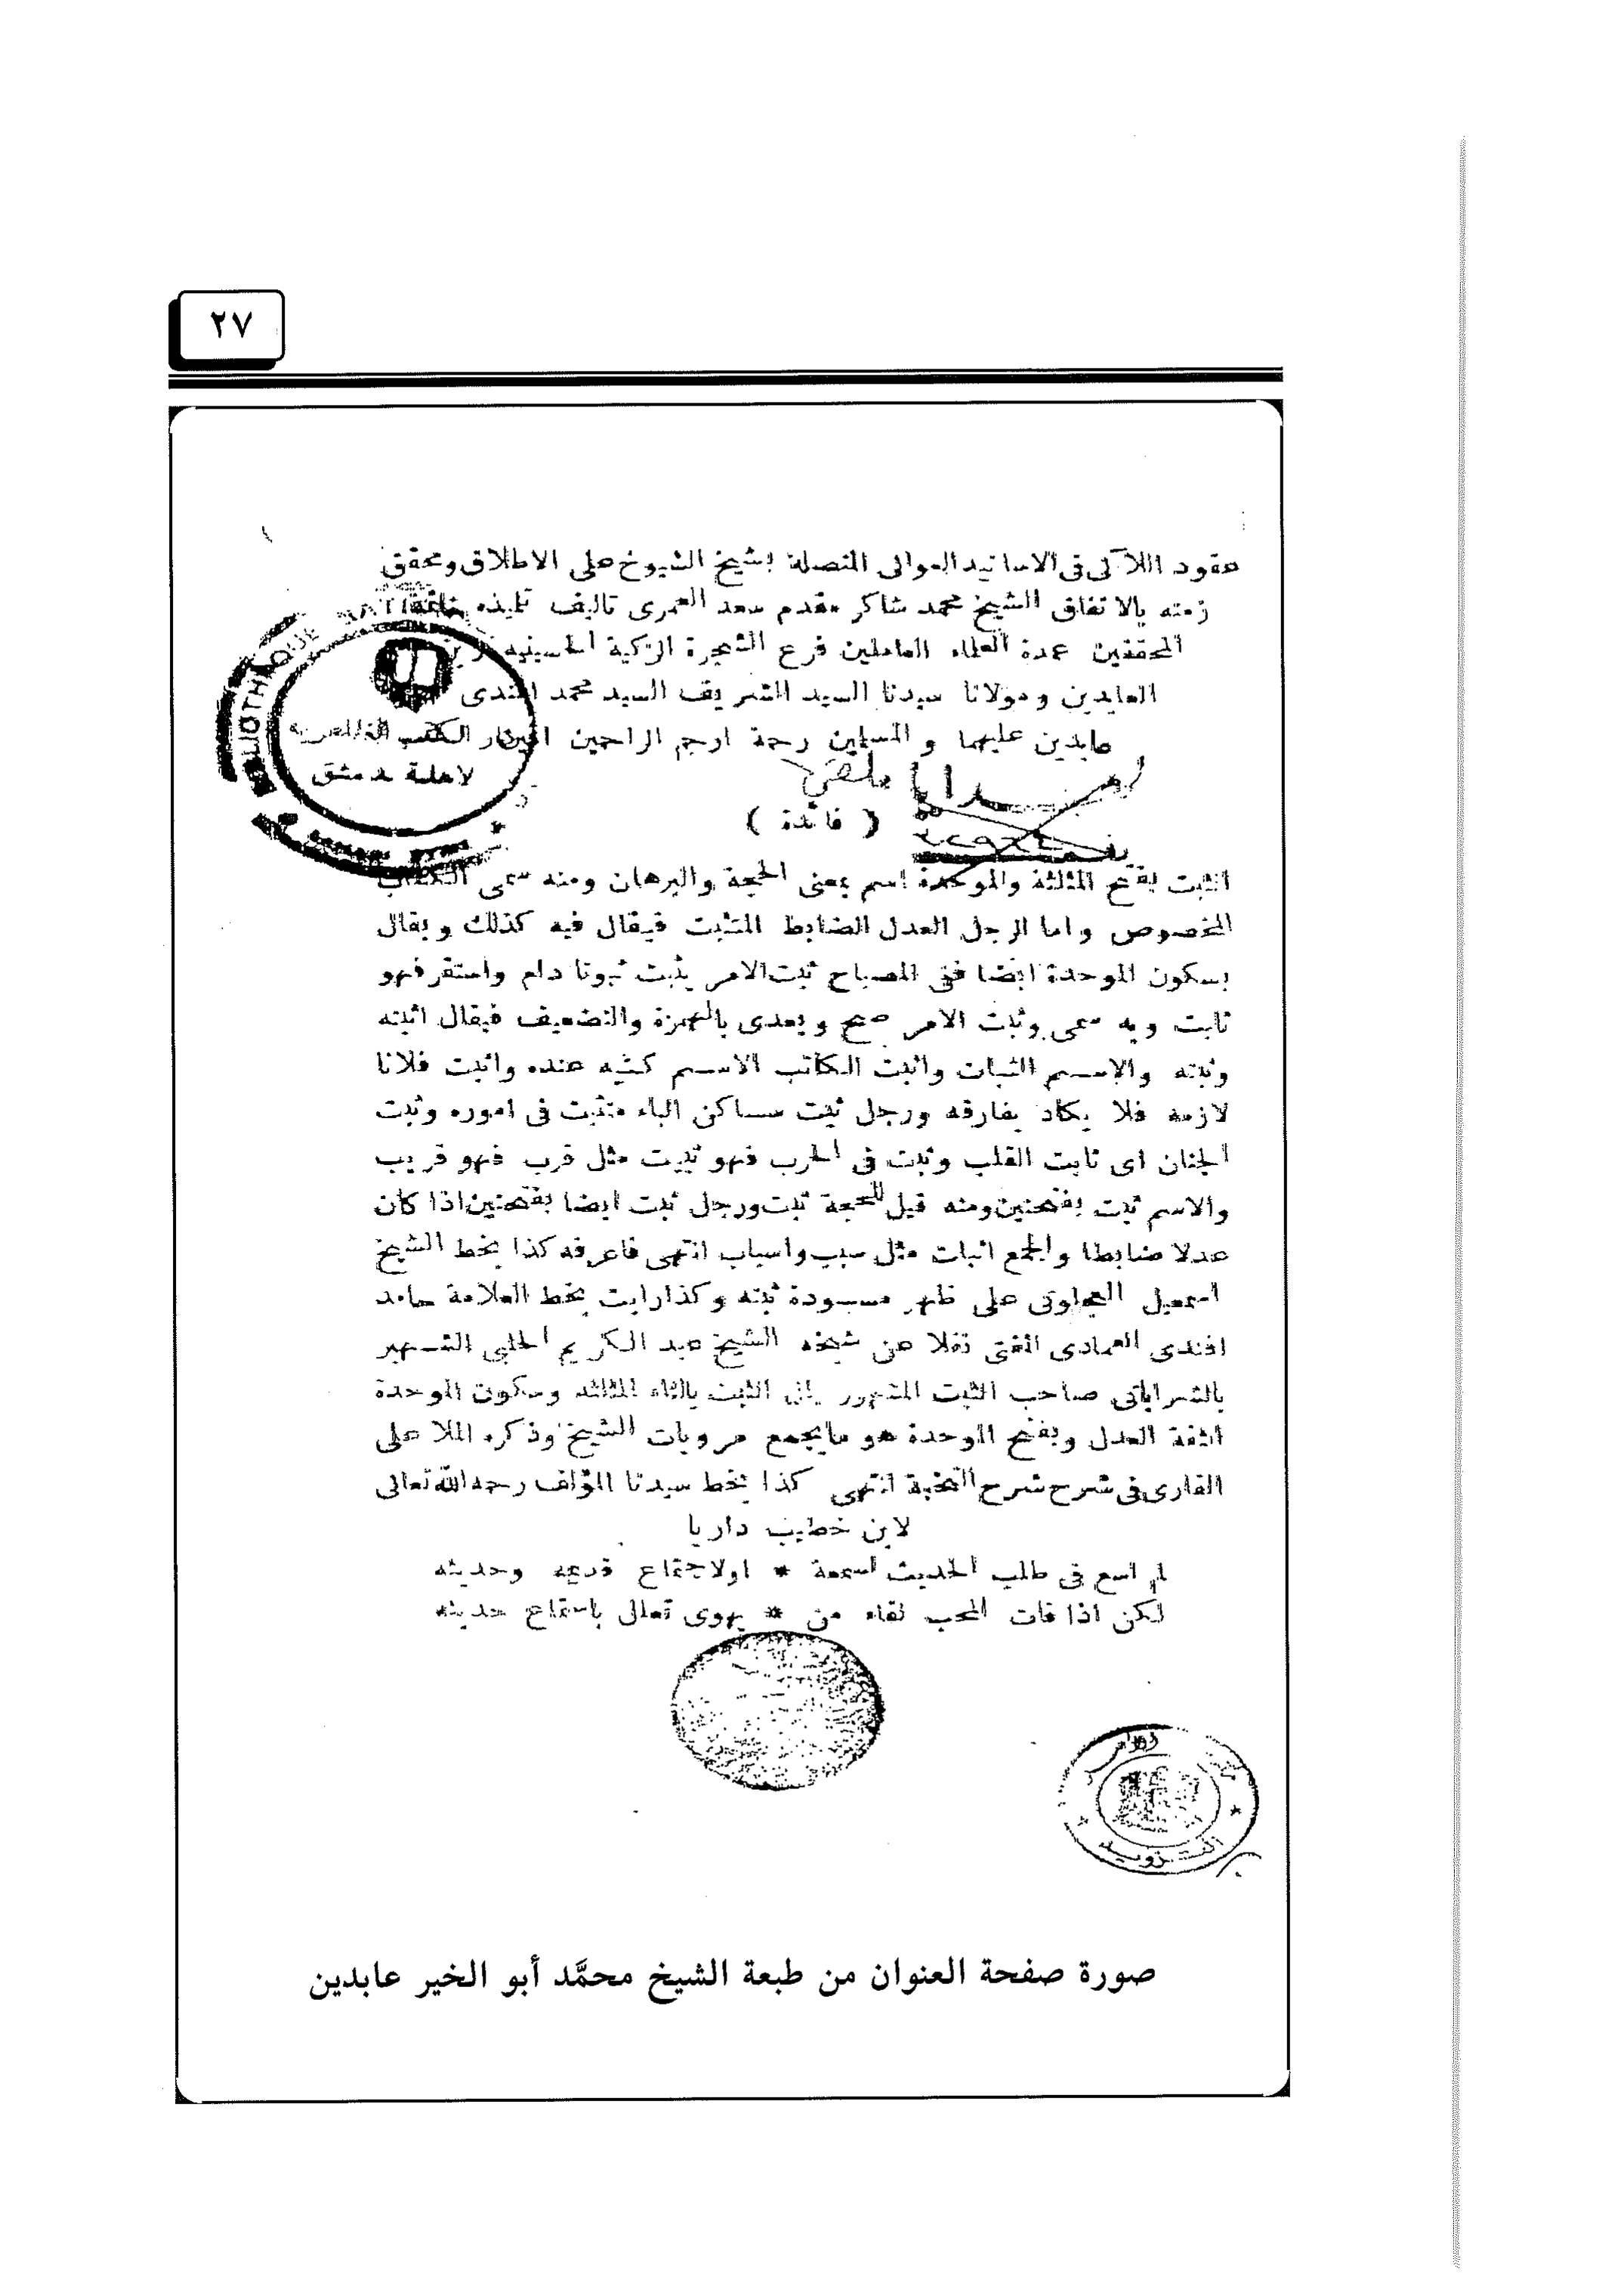 ٢٧
عقود اللآلى فى الاسانيد العوالى المتصلة بشيخ الشيوخ على الاطلاق ومحقق
زمنه بالاتفاق الشيخ محمد شاكر مقدم سعد العمرى تاليف تليذه خاتمة
المحققين عمدة العلماء العاملين فرع الشجرة الزكية الحسينيه زين
العابدين ومولانا سيدنا السيد الشريف السيد محمد افندى
عابدين عليهما و المسلمين رحمة ارحم الراحمين امين
دار الكتب الظاهرية
لاهلية بدمشق
BIBLIOTHEQUE
( فائدة )
الثبت بفتح المثلثة والموحدة اسم بمعنى الحجة والبرهان ومنه سمى الكتاب
المخصوص واما الرجل العدل الضابط المتثبت فيقال فيه كذلك ويقال
بسكون الموحدة ايضا ففى المصباح ثبت الامر يثبت ثبوتا دام واستقر فهو
ثابت وبه سمى وثبت الامر صح ويعدى بالهمزة والتضعيف فيقال اثبته
وثبته والاسم الثبات واثبت الكاتب الاسم كتبه عنده واثبت فلانا
لازمه فلا يكاد يفارقه ورجل ثبت ساكن الباء متثبت فى اموره وثبت
الجنان اى ثابت القلب وثبت فى الحرب فهو ثبيت مثل قرب فهو قريب
والاسم ثبت بفتحتين ومنه قيل للحجة ثبت ورجل ثبت ايضا بفتحتين اذا كان
عدلا ضابطا والجمع اثبات مثل سبب واسباب انتهى فاعرفه كذا بخط الشيخ
اسمعيل العجلونى على ظهر مسودة ثبته وكذا رايت بخط العلامة حامد
افندى العمادى المفتى نقلا عن شيخه الشيخ عبد الكريم الحلبى الشهير
بالشراباتى صاحب الثبت المشهور بان الثبت بالثاء المثلثه وسكون الموحدة
الثقة العدل وبفتح الموحدة هو ما يجمع مرويات الشيخ وذكره الملا على
القارى فى شرح شرح النخبة انتهى كذا بخط سيدنا المؤلف رحمه الله تعالى
لابن خطيب داريا
لم اسع فى طلب الحديث لسمعة * اولاجتماع قديمه وحديثه
لكن اذا فات المحب لقاء من * يهوى تعلل باستماع حديثه
صورة صفحة العنوان من طبعة الشيخ محمَّد أبو الخير عابدين